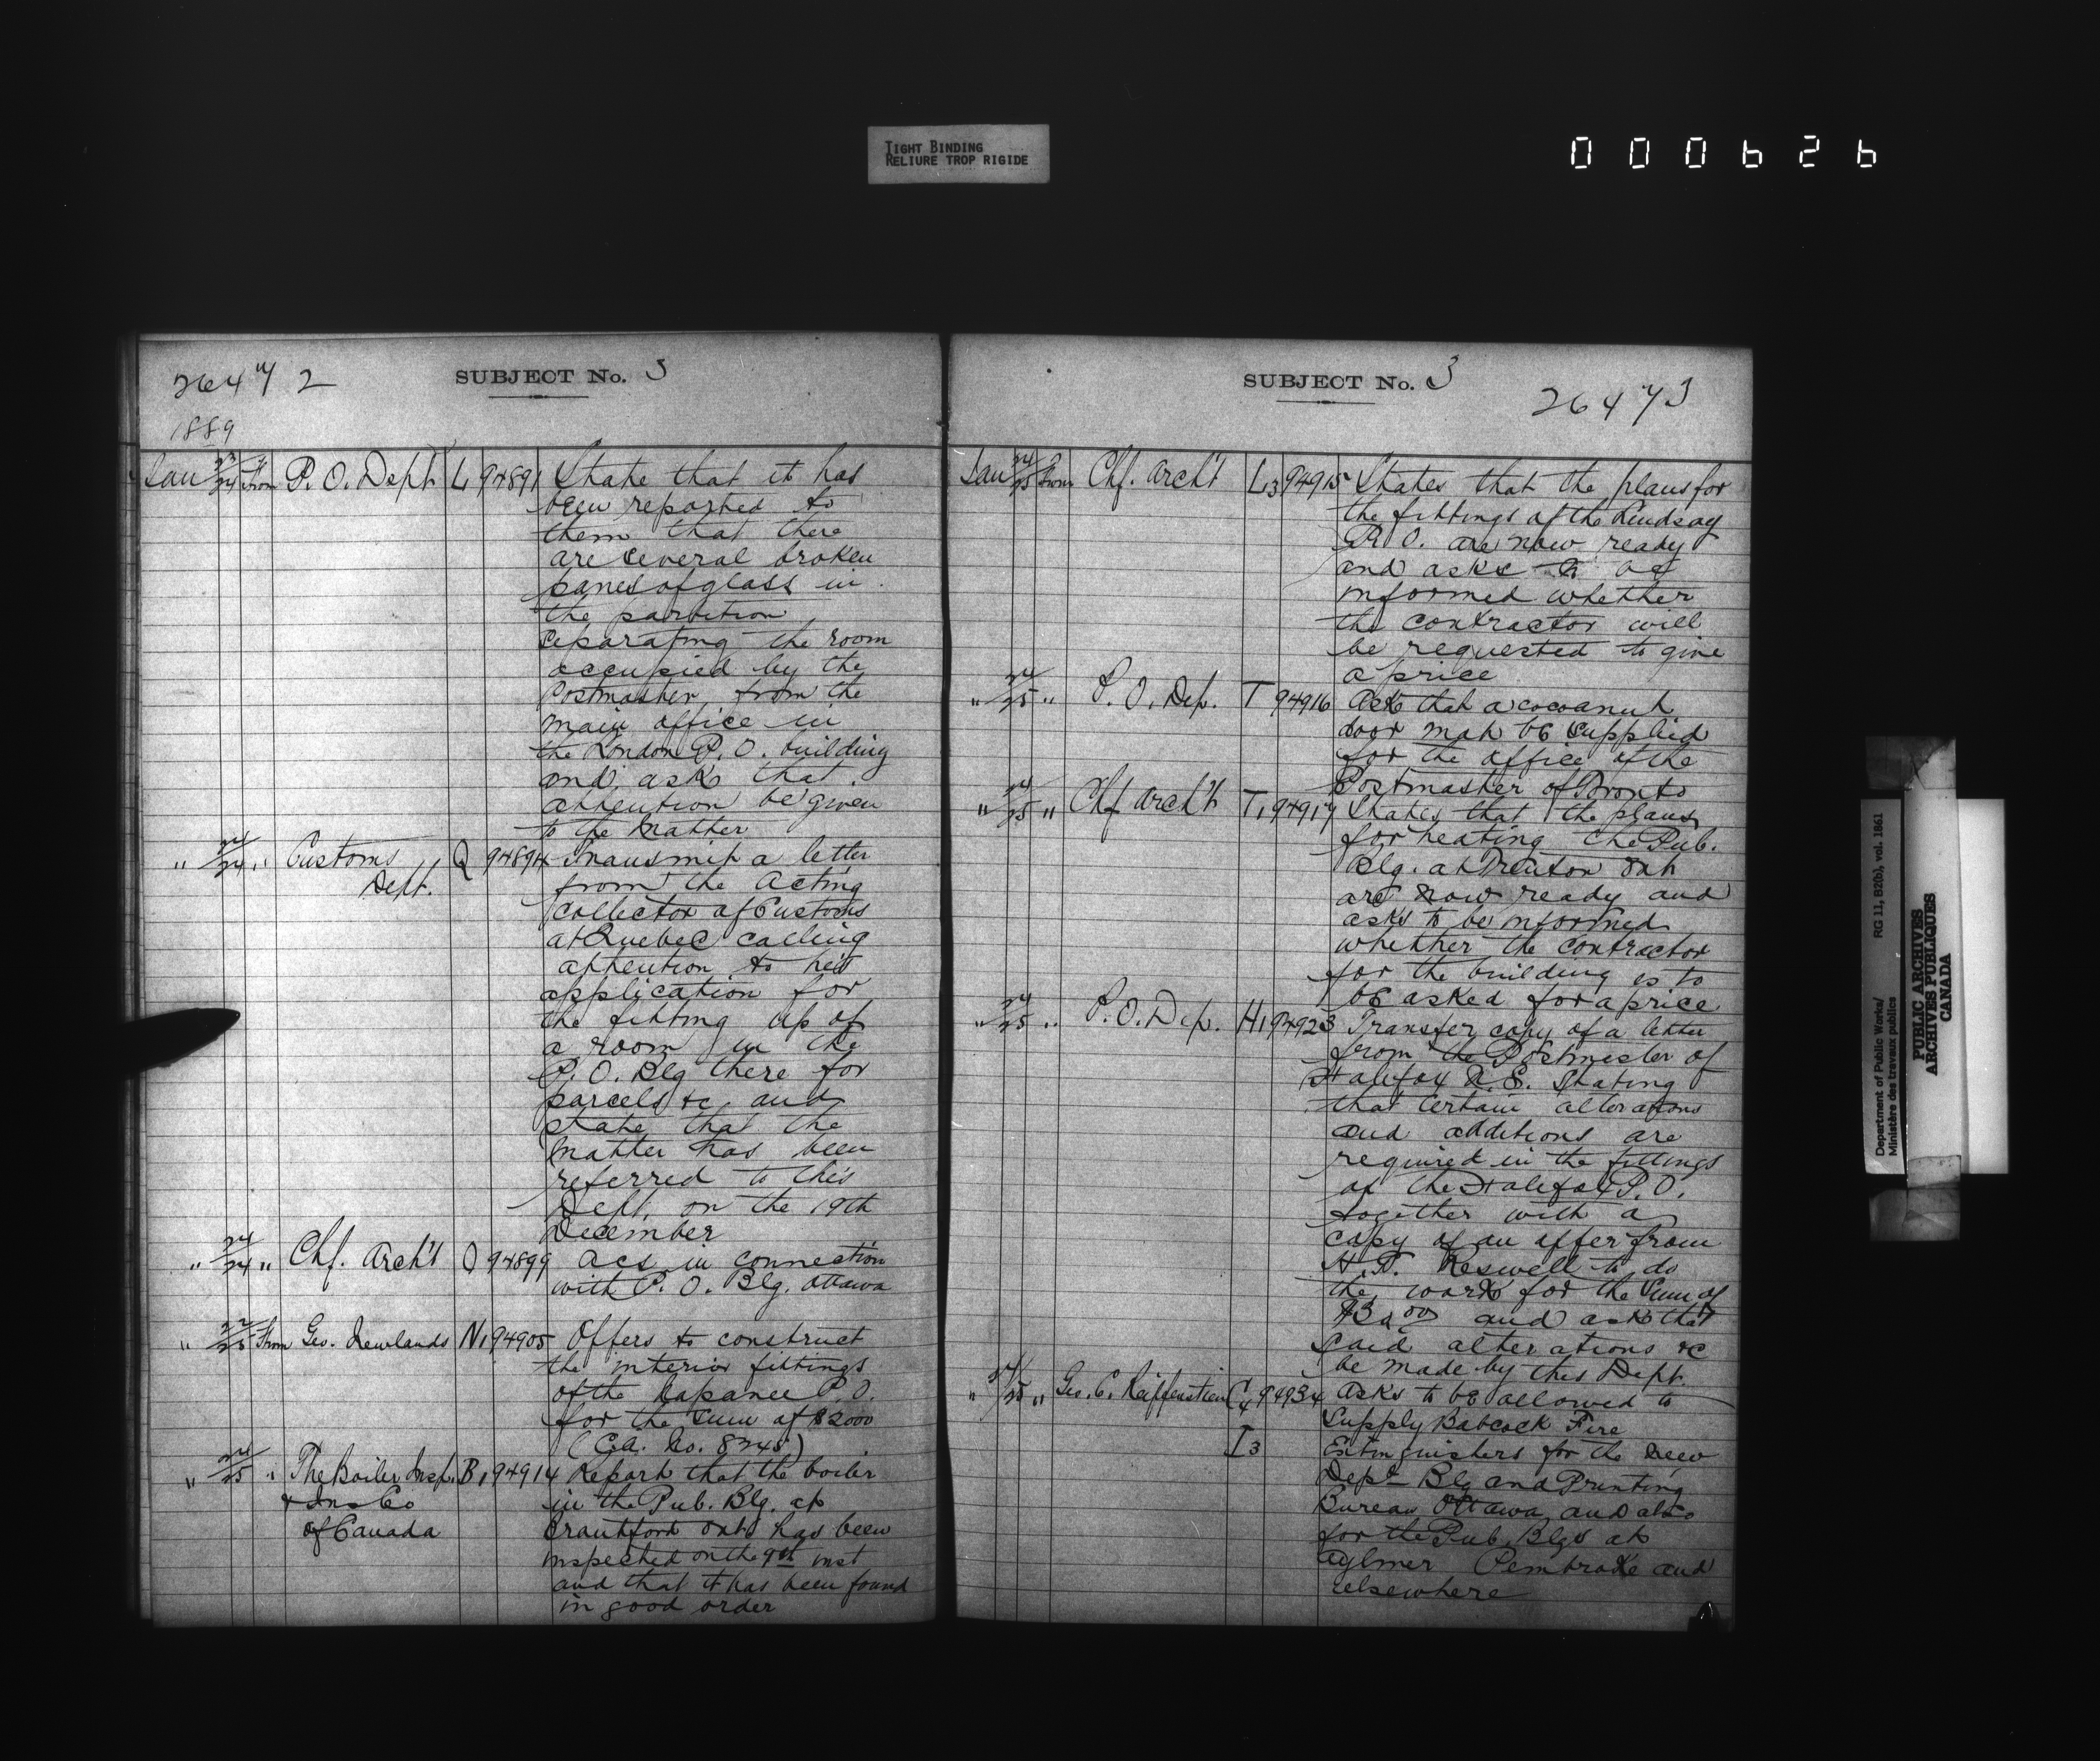 TIGHT BINDING
RELIURE TROP RIGIDE
000626
26472
SUBJECT No. 3
1889
Jan 23/24 From P. O. Dept. L 94891 State that it has
been reported to
them that there
are several broken
panes of glass in
the partition
separating the room
occupied by the
Postmaster from the
main office in
the London P. O. building
and ask that
attention be given
to the matter
" 24/24 " Customs Q 94894 Transmit a letter
Dept. from the Acting
Collector of Customs
at Quebec calling
attention to his
application for
the fitting up of
a room in the
P. O. Blg there for
parcels &c and
state that the
matter has been
referred to this
Dept. on the 19th
December
" 24/24 " Chf. Arch't O 94899 Acs in connection
with P. O. Blg. Ottawa
" 22/25 From Geo. Newlands N1 94905 Offers to construct
the interior fittings
of the Napanee P. O.
for the sum of $2000
(C.A. No. 8248)
" 24/25 " The Boiler Insp. B1 94914 Report that the boiler
& Ins Co in the Pub. Blg. at
of Canada Brantford Ont. has been
inspected on the 9th inst
and that it has been found
in good order
SUBJECT No. 3
26473
Jan 24/25 From Chf. Arch't L3 94915 States that the plans for
the fittings of the Lindsay
P. O. are now ready
and asks to be
informed whether
the contractor will
be requested to give
a price
" 24/25 " P. O. Dep. T 94916 Ask that a cocoanut
door mat be supplied
for the office of the
Postmaster of Toronto
" 24/25 " Chf Arch't T1 94917 States that the plans
for heating the Pub.
Blg. at Trenton Ont
are now ready and
asks to be informed
whether the contractor
for the building is to
be asked for a price
" 24/25 " P. O. Dep. H1 94923 Transfer copy of a letter
from the Postmaster of
Halifax N. S. stating
that certain alterations
and additions are
required in the fittings
of the Halifax P. O.
together with a
copy of an offer from
to do
the work for the sum of
and ask that
said alterations &c
be made by this Dept.
" 24/25 " Geo. C. Reiffenstein C4 94934 Asks to be allowed to
supply Babcock Fire
I3 Extinguishers for the new
Dept Blg and Printing
Bureau Ottawa and also
for the Pub. Blgs at
Aylmer Pembroke and
elsewhere
Department of Public Works/ RG 11, B2(b), vol. 1861
Ministère des travaux publics
PUBLIC ARCHIVES
ARCHIVES PUBLIQUES
CANADA